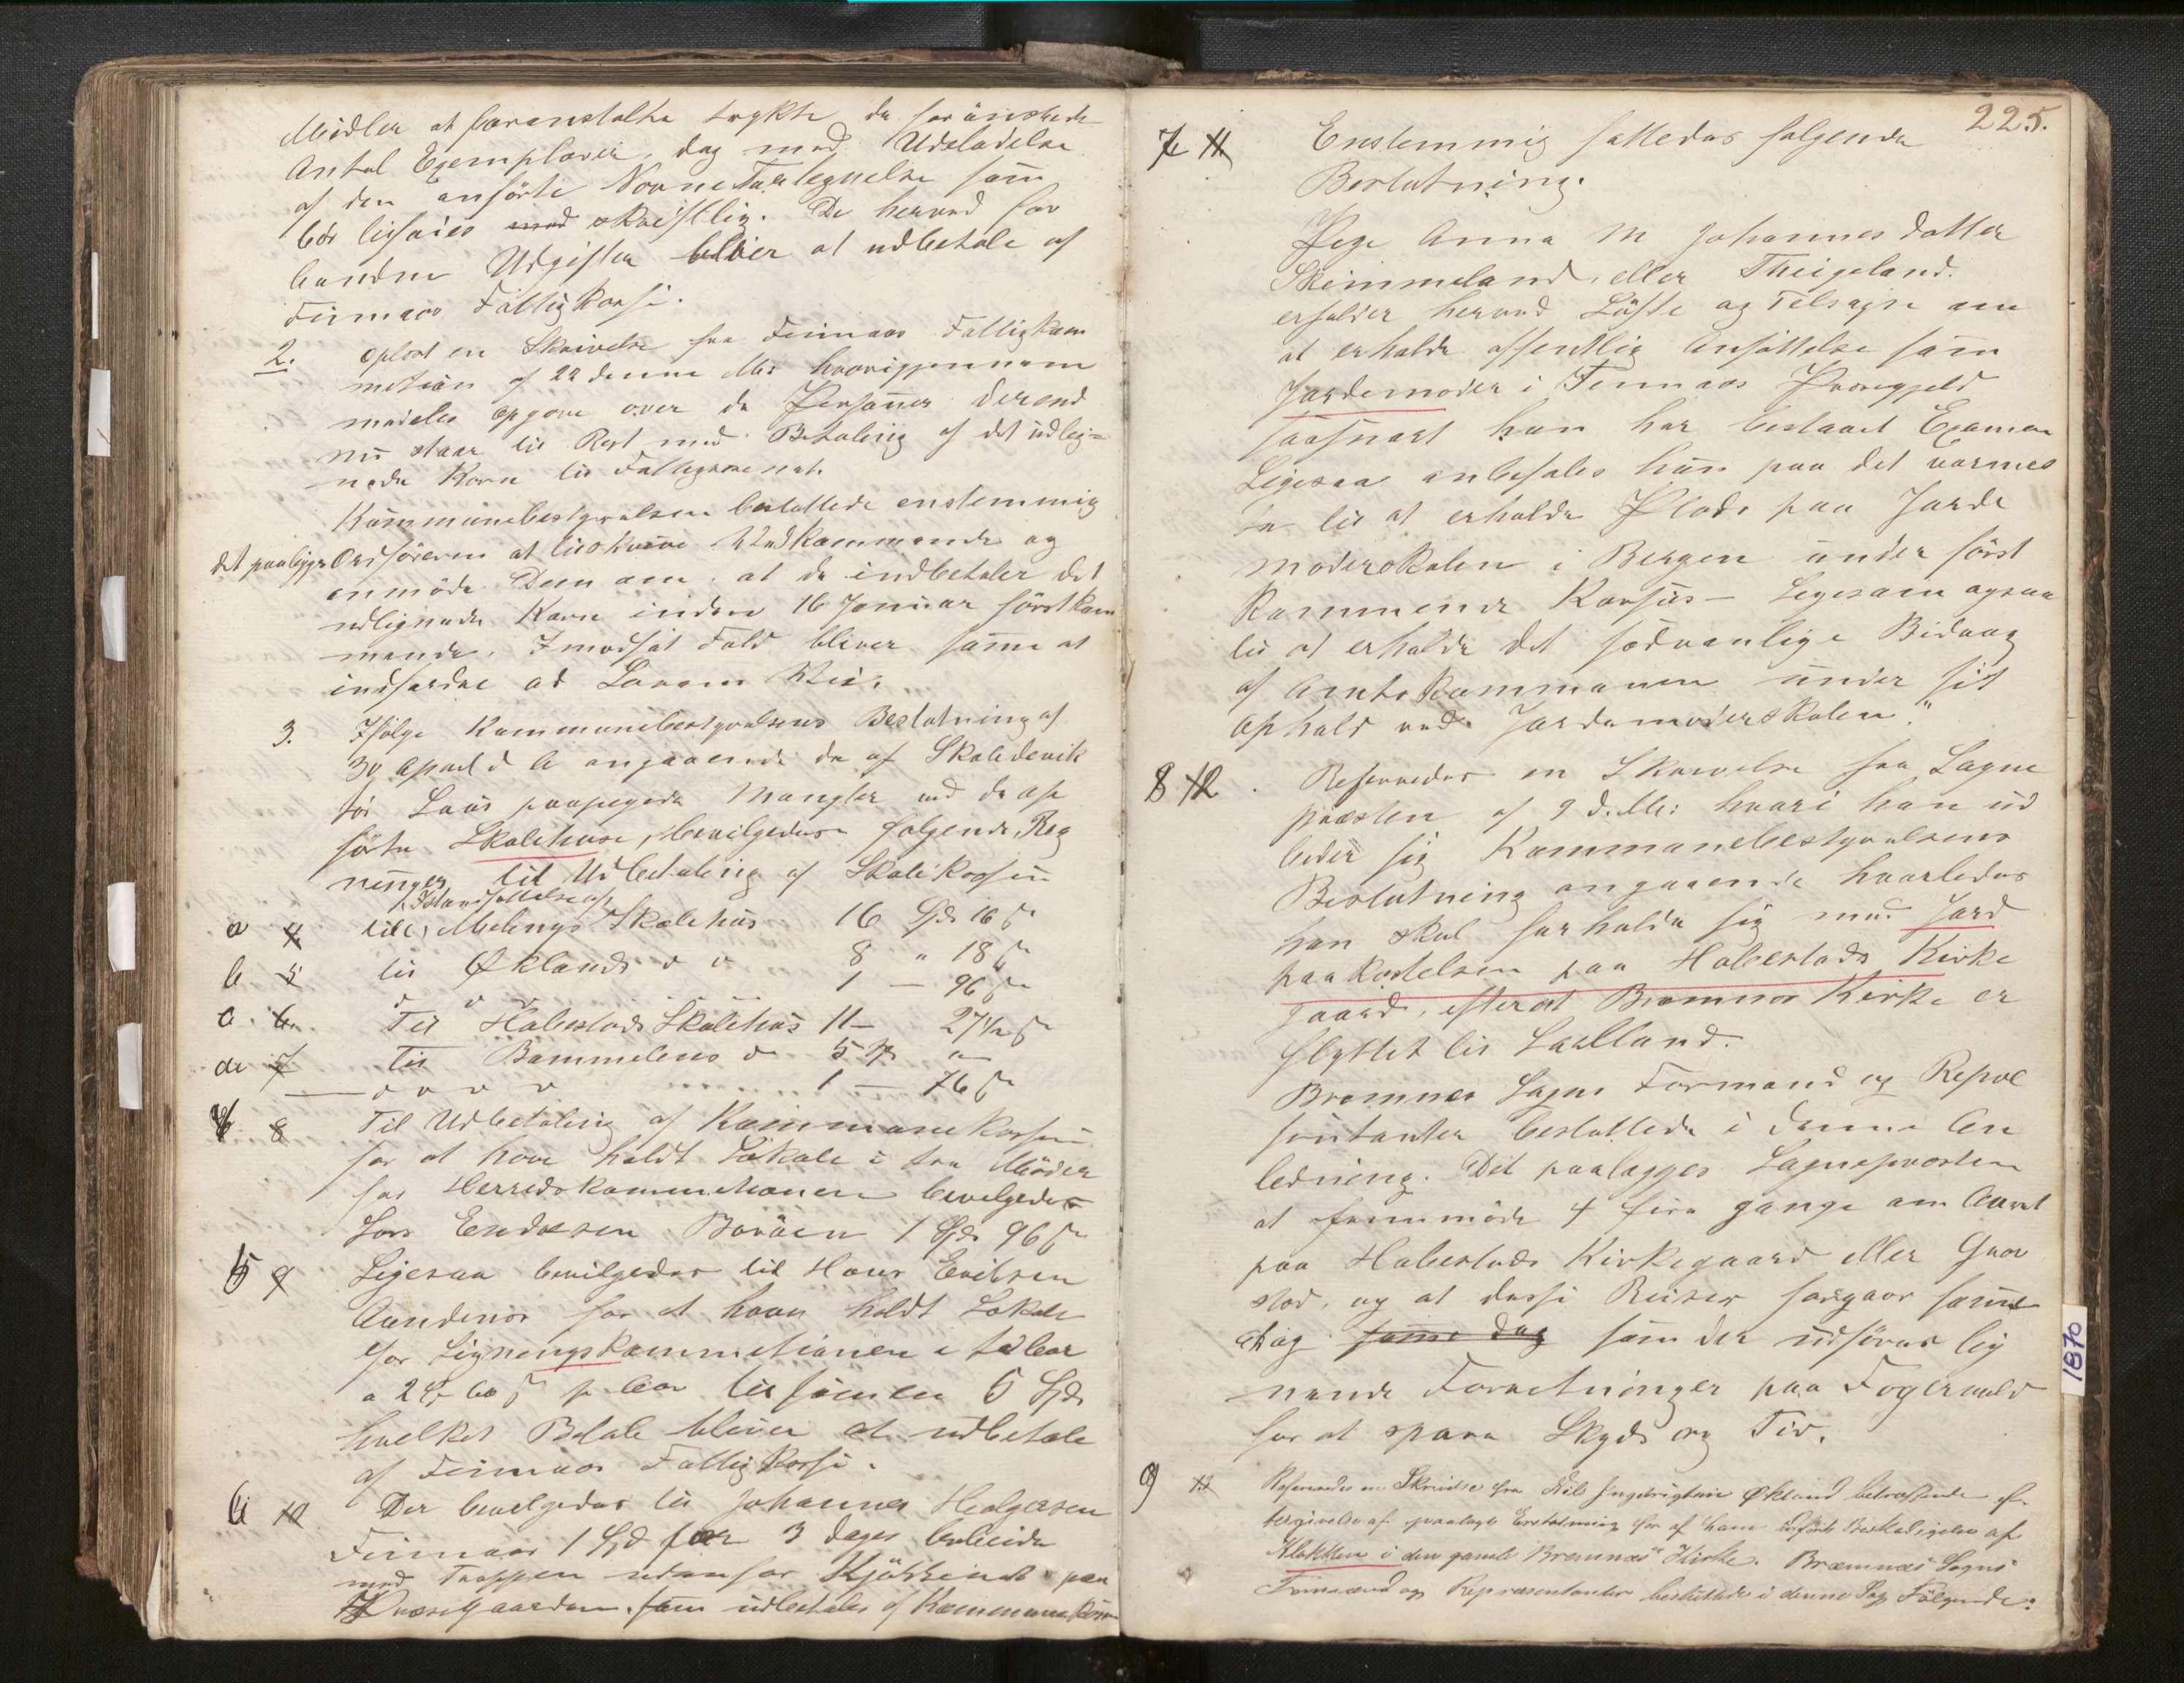 Midler at foranstalte trykte de forønskede
Antal Exemplarer, dog med Udeladelse
af den anførte Navnefortegnelse som
bør tilføies med skriftlig. De herved for
bundne Udgifter bliver at udbetale af
Finnaas Fattigkasse.
2. Oplæst en Skrivelse fra Finnaas Fattigkom
mission af 22 denne Md: hvorigjennem
meddeles Opgave over de Personer derend
nu staar til Rest med Betaling af det udlig=
nede Korn til Fattigvæsenet.
Kommunebestyrelsen besluttede enstemmig
det paalægges Ordføreren at tilskrive Vedkommende og
anmode Dem om, at de indbetaler det
udlignede Korn inden 16 Januar førstkom
mende. I modsat Fald bliver samme at
indfordre ad Lovens Vei.
3. Ifølge Kommunebestyrelsens Beslutning af
30 April d A angaaende de af Skoledirek
tør Laus paapegede Mangler ved de op
førte Skolehuse, bevilgedes følgende Reg
ninger til Udbetaling af Skolekassen
Istandsættelse af
a 4 till Melings Skolehus 16 Spd 16 s
b 5 til Øklands d o 8 " 18 s
d o o 1 — 96 s
c. 6. Til Habestads Skolehus 11 — 27½ s
d. 7 Til Bømmelens d 5 Sp "
— d o o o 1 — 76 s
4 8 Til Udbetaling af Kommunekassen
for at have holdt Lokale i tre Møder
for Herredskommitionen bevilgedes
Lars Endresen Børøen 1 Spd 96 s
5 9 Ligesaa bevilgedes til Hans Eriksen
Aandenes for at have holdt Lokale
for Ligningskommitionen i to Aar
a 2 Sp 60 s p Aar tilsammen 5 Spd
hvilket Beløb bliver at udbetale
af Finnaas Fattigkasse.
6 10 Der bevilgedes til Johannes Helgesen
Finnaas 1 Spd for 3 dages Arbeide
med Trappen udenfor Kjøkkenet paa
Præstegaarden, som udbetales af Kommunekassen
225.
7 11 Enstemmig fattedes følgende
Beslutning.
Pige Anna M Johannesdatter
Skimmeland, eller Theigeland.
erholder herved Løfte og Tilsagn om
at erholde offentlig Ansættelse som
Jordemoder i Finnaas Præstegjeld
saasnart hun har bestaaet Examen
Ligesaa anbefales hun paa det varmes
te til at erholde Plads paa Jorde
moderskolen i Bergen under først
kommende Kursus — Ligesom ogsaa
til at erholde det sædvanlige Bidrag
af Amtskommunen under sit
Ophold ved Jordemoderskolen."
8 12. Refereredes en Skrivelse fra Sogne
præsten af 9 d. Md: hvori han ud
beder sig Kommunebestyrelsens
Beslutning angaaende hvorledes
han skal forholde sig med Jord
paakastelsen paa Habestads Kirke
gaard, efterat Bremnes Kirke er
flyttet til Laelland.
Bremnes Sogns Formænd og Repræ
sentanter besluttede i denne An
ledning. Det paalægges Sognepræsten
at fremmøde 4 fire gange om Aaret
paa Habestads Kirkegaard eller Grav
sted, og at disse Reiser foregaar samme
dag samme dag som der udføres lig
nende Forretninger paa Fogervold
for at spare Skyds og Tid.
9 13 Refereredes en Skrivelse fra Nils Ingebrigtsen Økland betræffende ef
tergivelse af paalagt Erstatning for af ham udført Beskadigelse af
Klokken i den gamle Bremnæs Kirke. Bremnæs Sogns
Formænd og Repræsentanter besluttede i denne Sag Følgende:
1870